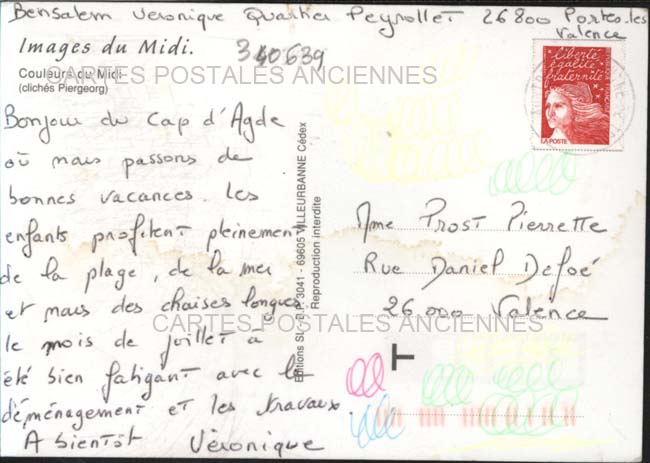 Bensalem Véronique Quartier Peyrollet 26800 Portes-les
Valence
Images du Midi.
340639
Couleurs du Midi
(clichés Piergeorg)
CARTES POSTALES ANCIENNES
liberté
égalité
fraternité
LA POSTE
Bonjour du Cap d'Agde
où nous passons de
bonnes vacances. les
enfants profitent pleinement
de la plage, de la mer
et nous des chaises longues
le mois de juillet a
été bien fatigant avec le
déménagement et les travaux.
A bientôt Véronique
Editions SL - B.P. 3041 - 69605 VILLEURBANNE Cédex
Reproduction interdite
Mme Prost Pierrette
Rue Daniel Defoé
26000 Valence
CARTES POSTALES ANCIENNES
T